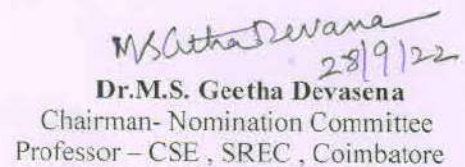 MSGeetha Devasena
28/9/22
Dr.M.S. Geetha Devasena
Chairman- Nomination Committee
Professor – CSE , SREC , Coimbatore